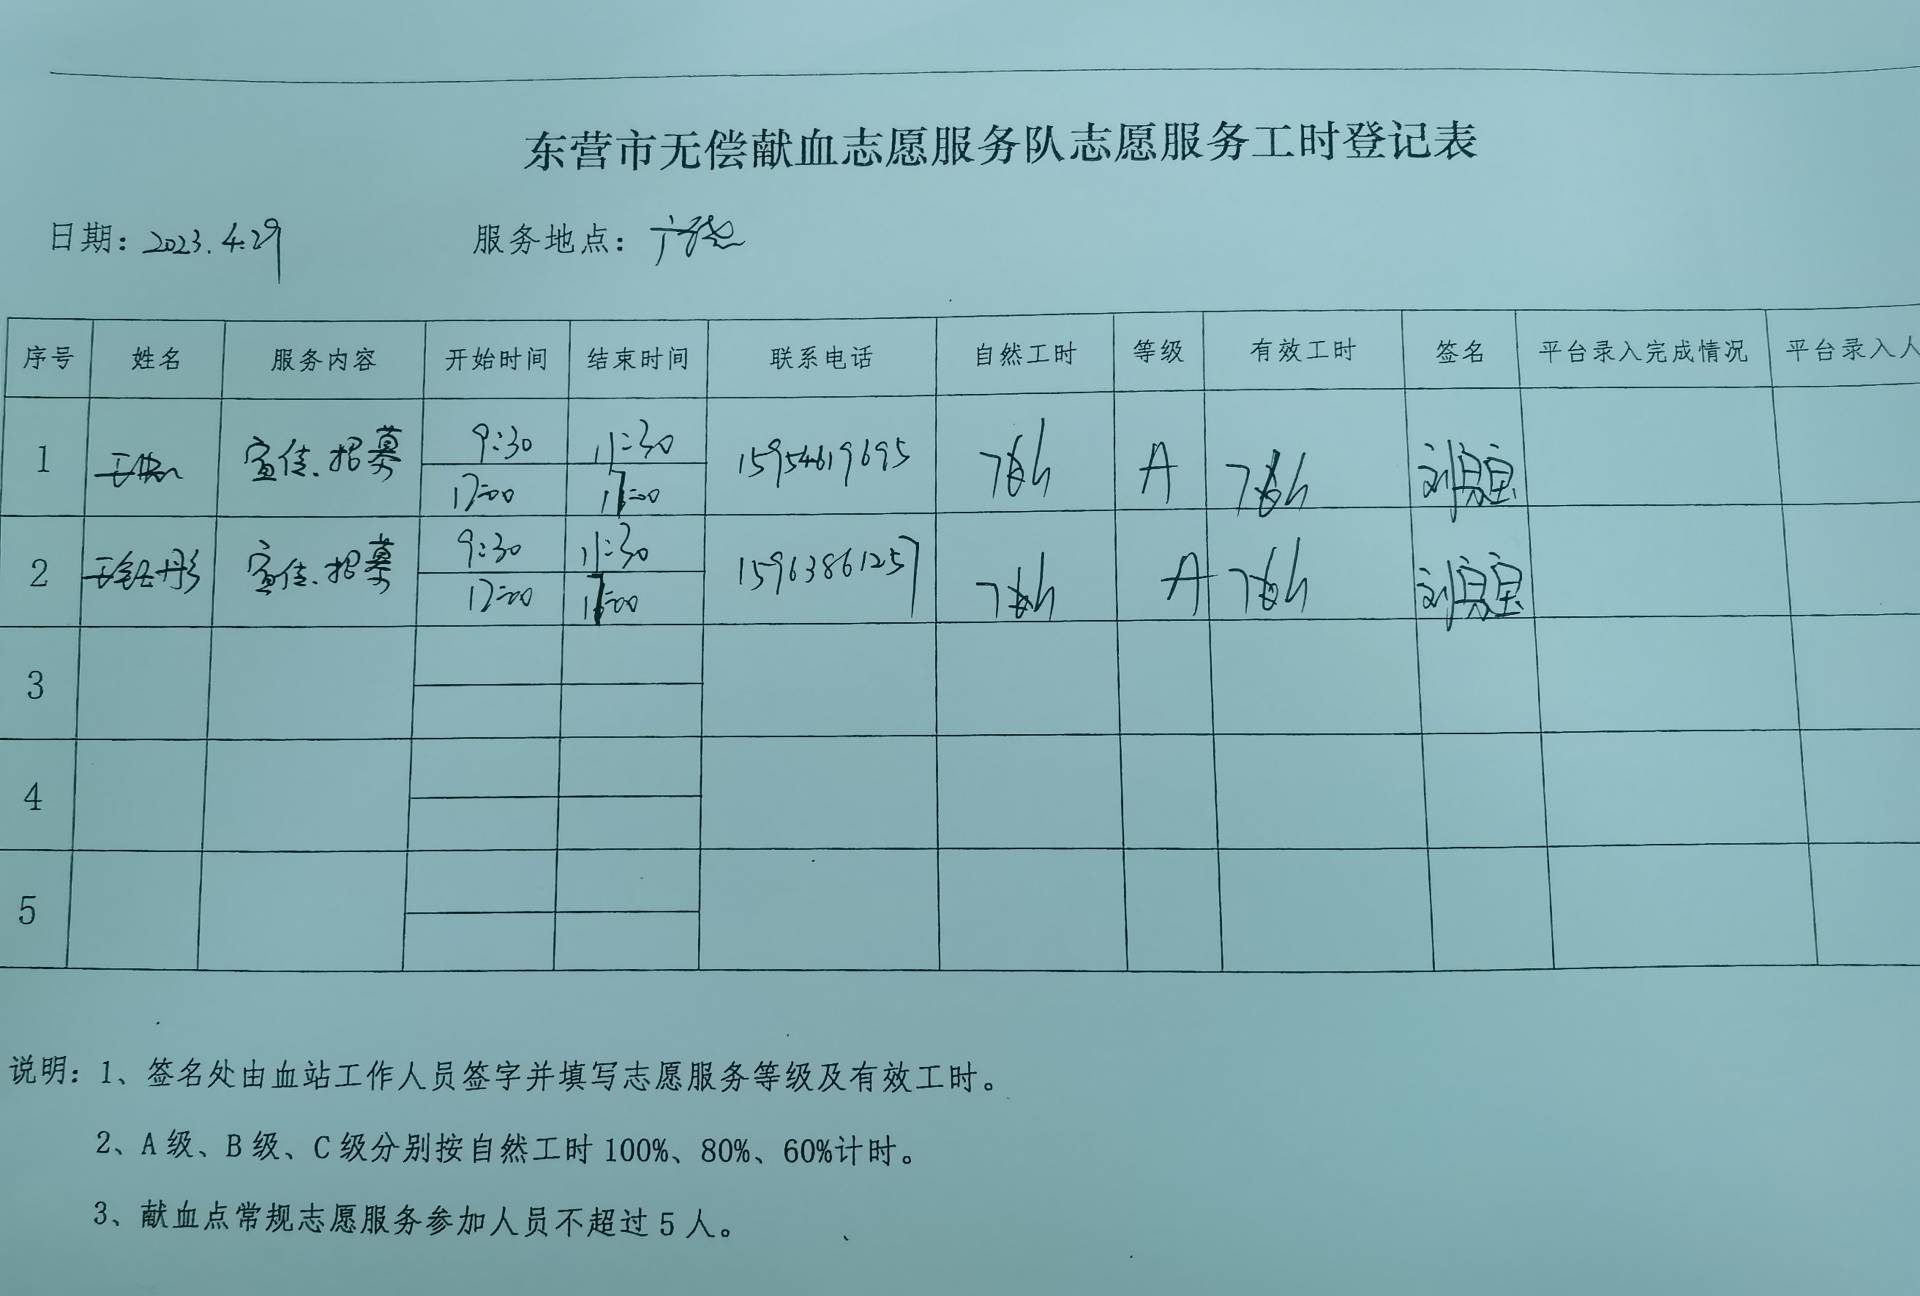 东营市无偿献血志愿服务队志愿服务工时登记表
日期: 2023.4.29 服务地点: 广饶
序号 姓名 服务内容 开始时间 结束时间 联系电话 自然工时 等级 有效工时 签名 平台录入完成情况 平台录入人
1 宣传、招募 9:30 11:30 15954619695 A
12:00
2 宣传、招募 9:30 11:30 15963861257 A
12:00
3
4
5
说明: 1、签名处由血站工作人员签字并填写志愿服务等级及有效工时。
2、A级、B级、C级分别按自然工时100%、80%、60%计时。
3、献血点常规志愿服务参加人员不超过5人。